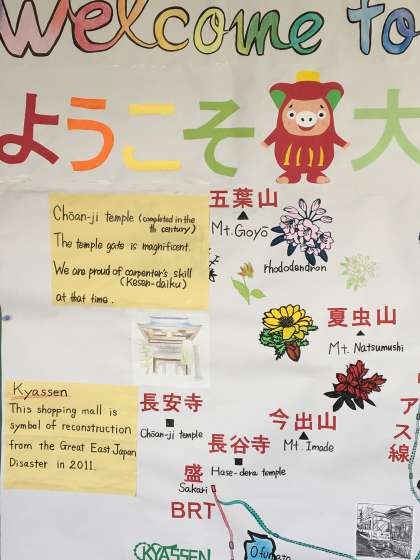 Welcome to
ようこそ 大
Chōan-ji temple (completed in the
th century)
The temple gate is magnificent.
We are proud of carpenter's skill
(Kesen-daiku)
at that time.
五葉山
Mt. Goyō
rhododendron
夏虫山
Mt. Natsumushi
Kyassen
This shopping mall is
symbol of reconstruction
from the Great East Japan
Disaster in 2011.
長安寺
Chōan-ji temple
今出山
Mt. Imade
長谷寺
Hase-dera temple
アス線
盛
Sakari
BRT
KYASSEN
Ofunato